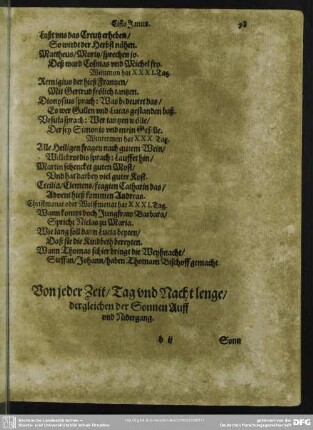 Cisio Janus.
Lasst vns das Creutz erheben/
So wirdt der Herbst nähen.
Mattheus/Moritz/sprechen so.
Deß ward Cosmas vnd Michel fro.
Weinmon hat XXXI. Tag.
Remigius der hieß Frantzen/
Mit Gertrud frölich tantzen.
Dionysius sprach: Was bedeutet das/
Es wer Gallen vnd Lucas gestanden baß.
Vrsula sprach: Wer tantzen wölle/
Der sey Simonis vnd mein Geselle.
Wintermon hat XXX. Tag.
Alle Heiligen fragen nach gutem Wein/
Willebrordis sprach: Lauffet hin/
Martin schencket guten Most/
Vnd hat darbey viel guter Kost.
Cecilia/Clemens/fragten Catharin das/
Advent hieß kommen Andreas.
Christmonat oder Wolffmonat hat XXXI. Tag.
Wann kompt doch Jungfraw Barbara/
Spricht Niclas zu Maria.
Wie lang soll dann Lucia beyten/
Daß sie die Kindbeth bereyten.
Wann Thomas schier bringt die Weyhnacht/
Steffan/Johann/haben Thomam Bischoff gemacht.
Von jeder Zeit/Tag vnd Nacht lenge/
dergleichen der Sonnen Auff
vnd Nidergang.
b ij
Sonn